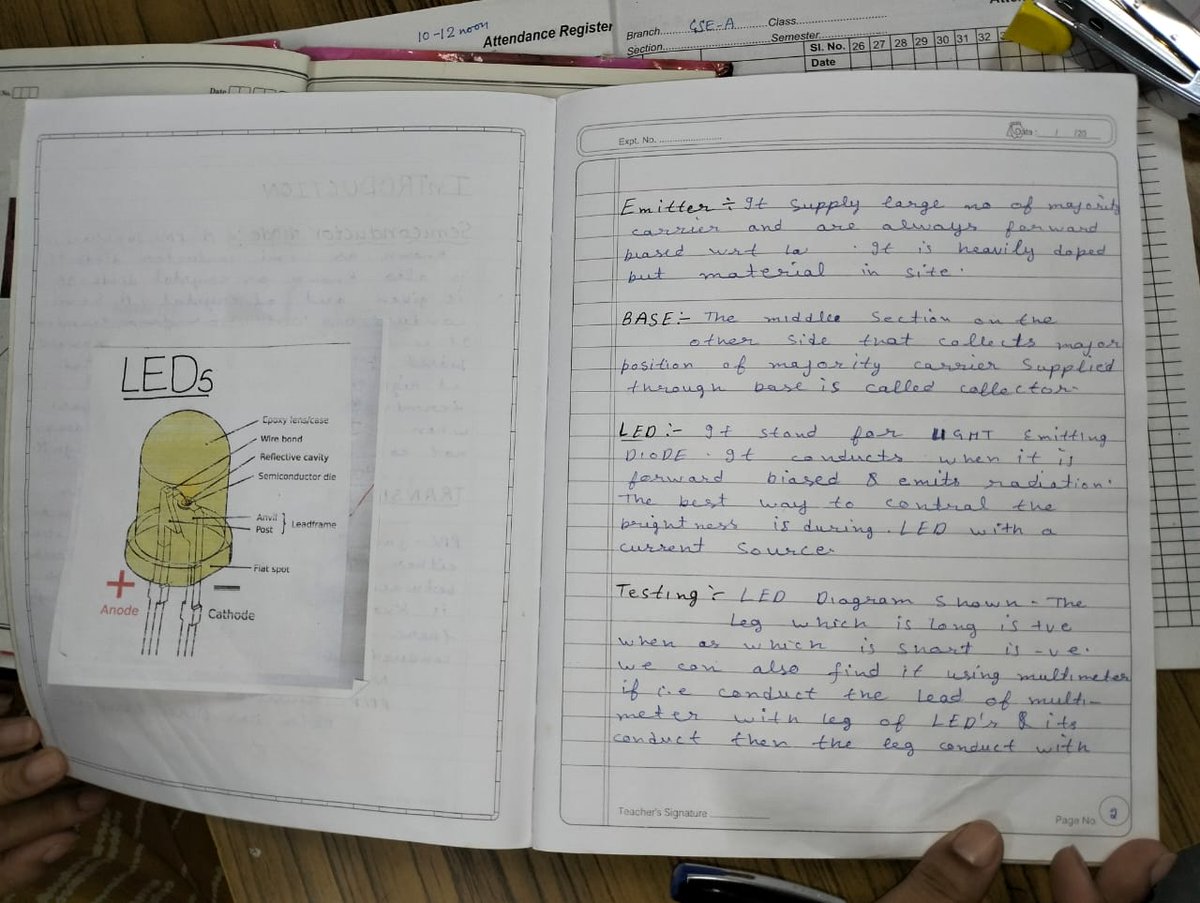 10-12 noon
Attendance Register
Branch GSE-A Class
Section Semester
Sl. No. 26 27 28 29 30 31 32
Date
Date
Expt. No.
Date : / /20
Emitter ÷ It supply large no of majority
carrier and are always forward
biased wrt la . It is heavily doped
but material in site.
BASE:- The middle section on the
other side that collects major
position of majority carrier supplied
through base is called collector.
LED :- It stand for LIGHT Emitting
DIODE. It conducts when it is
forward biased & emits radiation.
The best way to control the
brightness is during. LED with a
current source.
Testing :- LED Diagram shown. The
leg which is long is +ve
when as which is short is -ve.
we can also find it using multimeter
if i.e conduct the lead of multi-
meter with leg of LED's & its
conduct then the leg conduct with
Teacher's Signature
Page No. 2
LEDs
Epoxy lens/case
Wire bond
Reflective cavity
Semiconductor die
Anvil
Post
Leadframe
Flat spot
+ −
Anode
Cathode
INTRODUCTION